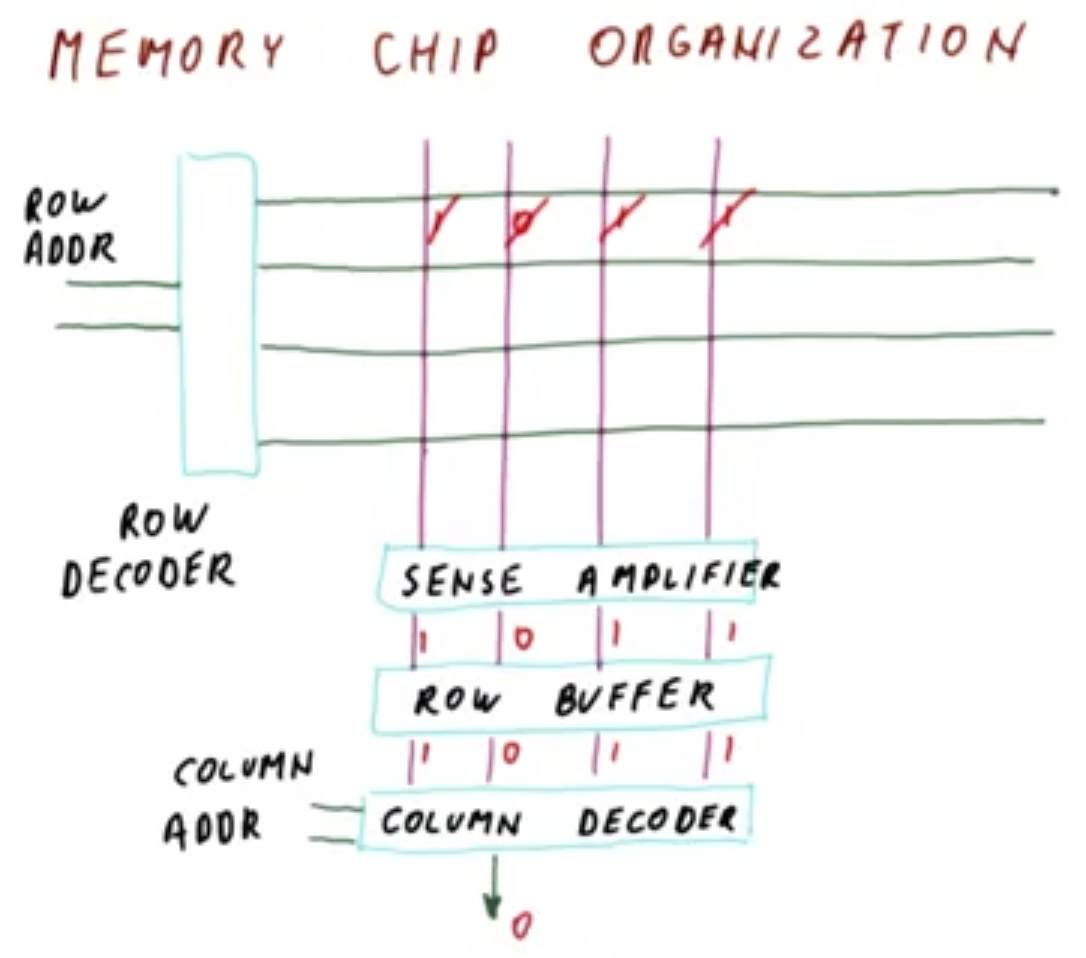 MEMORY CHIP ORGANIZATION
ROW
ADDR
1 0 1 1
ROW
DECODER
SENSE AMPLIFIER
1 0 1 1
ROW BUFFER
1 0 1 1
COLUMN
ADDR
COLUMN DECODER
0